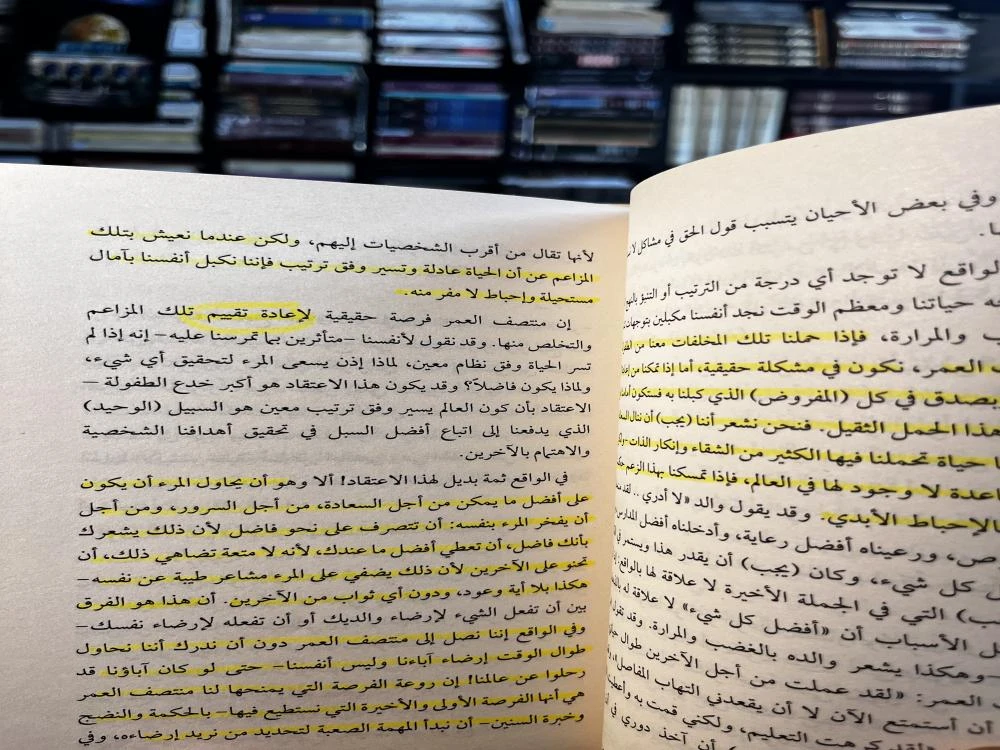 وفي بعض الأحيان يتسبب قول الحق في مشاكل لا
لواقع لا توجد أي درجة من الترتيب أو التنبؤ
حياتنا ومعظم الوقت نجد أنفسنا مكبلين بتوجهات
والمرارة، فإذا حملنا تلك المخلفات معنا من
العمر، نكون في مشكلة حقيقية، أما إذا تمكنا من
بصدق في كل (المفروض) الذي كبلنا به فستكون
هذا الحمل الثقيل. فنحن نشعر أننا (يجب) أن ننال
حياة تحملنا فيها الكثير من الشقاء وإنكار الذات
اعدة لا وجود لها في العالم، فإذا تمسكنا بهذا الزعم
الإحباط الأبدي. وقد يقول والد «لا أدري .. لقد
ص، ورعيناه أفضل رعاية، وأدخلناه أفضل المدارس
كل شيء، وكان (يجب) أن يقدر هذا ويستمر في
التي في الجملة الأخيرة لا علاقة لها بالواقع
الأسباب أن «أفضل كل شيء» لا علاقة له
وهكذا يشعر والده بالغضب والمرارة. وقد تقول
العمر: «لقد عملت من أجل الآخرين طوال
أن أستمتع الآن لا أن يقعدني التهاب المفاصل
كرهت التعليم، ولكني قمت به
أن آخذ دوري في
لأنها تقال من أقرب الشخصيات إليهم، ولكن عندما نعيش بتلك
المزاعم عن أن الحياة عادلة وتسير وفق ترتيب فإننا نكبل أنفسنا بآمال
مستحيلة وإحباط لا مفر منه.
إن منتصف العمر فرصة حقيقية لإعادة تقييم تلك المزاعم
والتخلص منها. وقد نقول لأنفسنا –متأثرين بما تمرسنا عليه– إنه إذا لم
تسر الحياة وفق نظام معين، لماذا إذن يسعى المرء لتحقيق أي شيء،
ولماذا يكون فاضلاً؟ وقد يكون هذا الاعتقاد هو أكبر خدع الطفولة –
الاعتقاد بأن كون العالم يسير وفق ترتيب معين هو السبيل (الوحيد)
الذي يدفعنا إلى اتباع أفضل السبل في تحقيق أهدافنا الشخصية
والاهتمام بالآخرين.
في الواقع ثمة بديل لهذا الاعتقاد! ألا وهو أن يحاول المرء أن يكون
على أفضل ما يمكن من أجل السعادة، من أجل السرور، ومن أجل
أن يفخر المرء بنفسه: أن تتصرف على نحو فاضل لأن ذلك يشعرك
بأنك فاضل، أن تعطي أفضل ما عندك، لأنه لا متعة تضاهي ذلك، أن
تحنو على الآخرين لأن ذلك يضفي على المرء مشاعر طيبة عن نفسه–
هكذا بلا أية وعود، ودون أي ثواب من الآخرين. أن هذا هو الفرق
بين أن تفعل الشيء لإرضاء والديك أو أن تفعله لإرضاء نفسك–
وفي الواقع إننا نصل إلى منتصف العمر دون أن ندرك أننا نحاول
طوال الوقت إرضاء آباءنا وليس أنفسنا– حتى لو كان آباؤنا قد
رحلوا عن عالمنا! إن روعة الفرصة التي يمنحها لنا منتصف العمر
هي أنها الفرصة الأولى والأخيرة التي نستطيع فيها– بالحكمة والنضج
وخبرة السنين– أن نبدأ المهمة الصعبة لتحديد من نريد إرضاءه، وفي